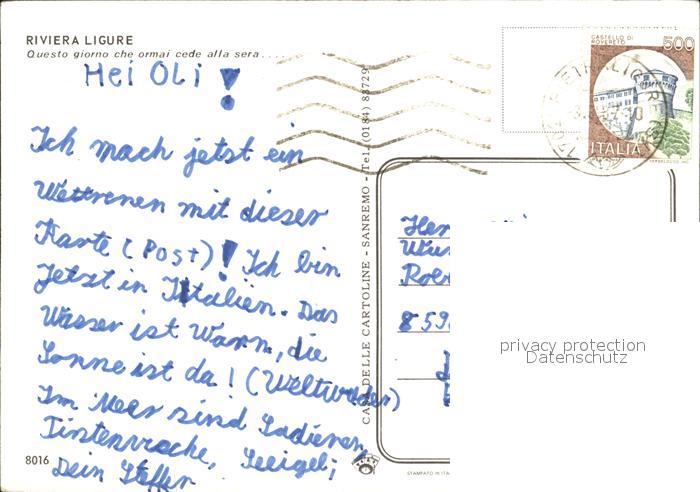 RIVIERA LIGURE
Questo giorno che ormai cede alla sera....
Hei Oli!
Ich mach jetzt ein
Wettrenen mit dieser
Karte (Post)! Ich bin
jetzt in Italien. Das
Wasser ist Warm, die
Sonne ist da! (Weltwunder)
Im Meer sind Sardienen,
Tintenvrache, Seeigel;
Dein Steffen
8016
CASA DELLE CARTOLINE - SANREMO - Tel. (0184) 83729
STAMPATO IN ITA
CASTELLO DI
ROVERETO
500
ITALIA
859
privacy protection
Datenschutz